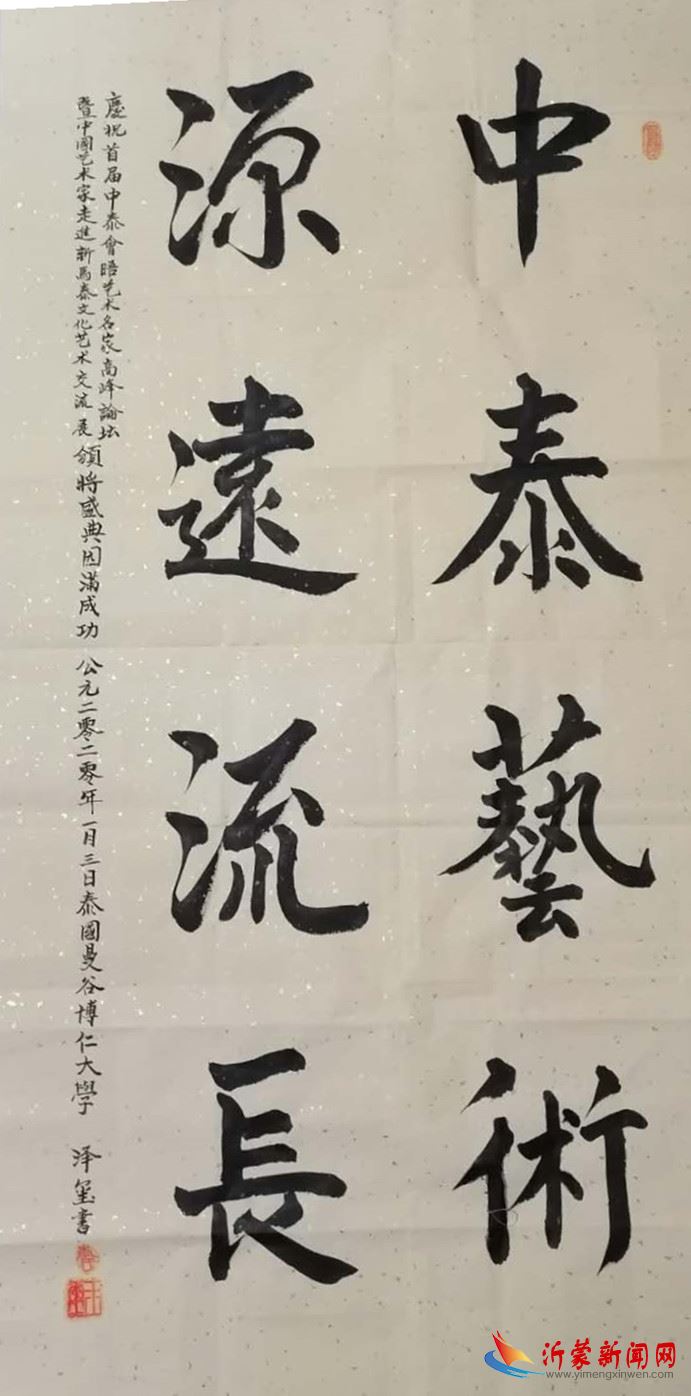 中泰藝術
源遠流長
慶祝首届中泰會晤艺术名家高峰論坛
暨中國艺术家走進新馬泰文化艺术交流展
頒將盛典因滿成功 公元二零二零年一月三日泰國曼谷博仁大學 泽玺書
沂蒙新闻网
www.yimengxinwen.com